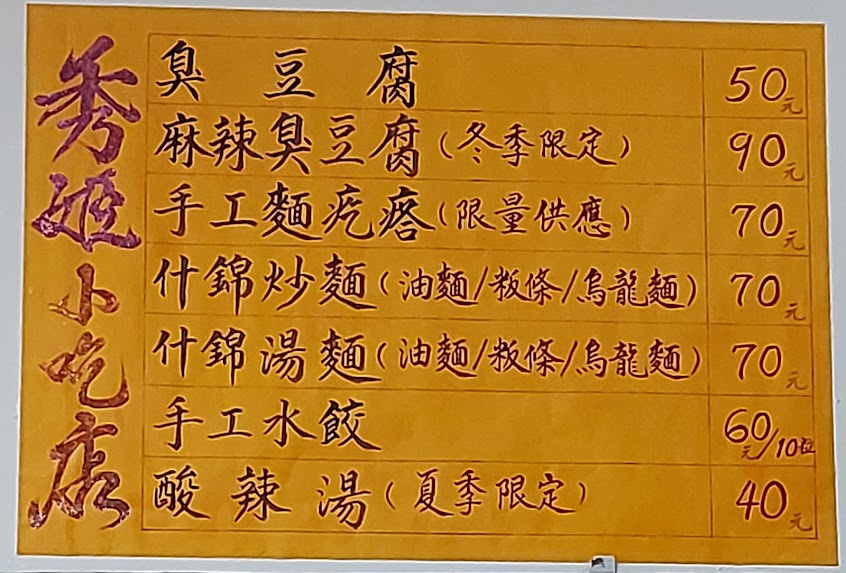 秀姬小吃店
臭豆腐 50元
麻辣臭豆腐(冬季限定) 90元
手工麵疙瘩(限量供應) 70元
什錦炒麵(油麵/粄條/烏龍麵) 70元
什錦湯麵(油麵/粄條/烏龍麵) 70元
手工水餃 60元/10粒
酸辣湯(夏季限定) 40元